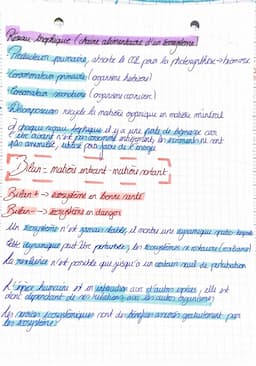 Réseau trophique (chaîne alimentaire d'un écosystème)
Producteur primaire, absorbe le CO2 pour la photosynthèse → biomasse
Consommateur primaire (organisme herbivore)
Consommateur secondaire (organisme carnivore)
Décomposeur recycle la matière organique en matière minéral
à chaque niveau trophique il y a une perte de biomasse car
l'être vivant n'est pas consommé entièrement, les excréments ne sont
pas consommé, utilisé pour faire de l'énergie
Bilan = matière entrant - matière sortant
Bilan + → écosystème en bonne santé
Bilan - → écosystème en danger
Un écosystème n'est jamais stable, il montre une dynamique spatio-temporelle
Cette dynamique peut être perturbée, les écosystèmes se restaure (résilience)
La résilience n'est possible que jusqu'à un certain seuil de perturbation
L'espèce humaine est en interaction avec d'autres espèces, elle est
donc dépendante de ses relations avec les autres organismes
Les services écosystémiques sont des bénéfices amenés gratuitement par
les écosystèmes